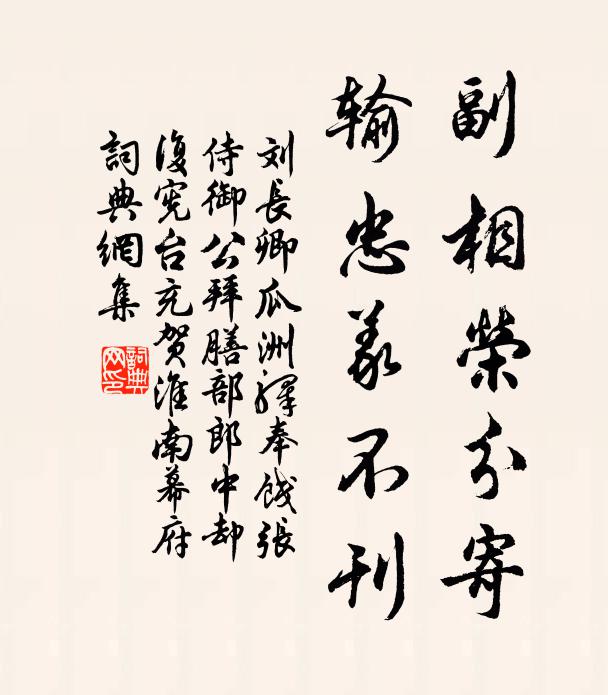 副相榮分寄
輸忠義不刊
刘長卿瓜洲驛奉餞張
侍御公拜膳部郎中却
復宪台充贺淮南幕府
詞典網集
詞典
网印